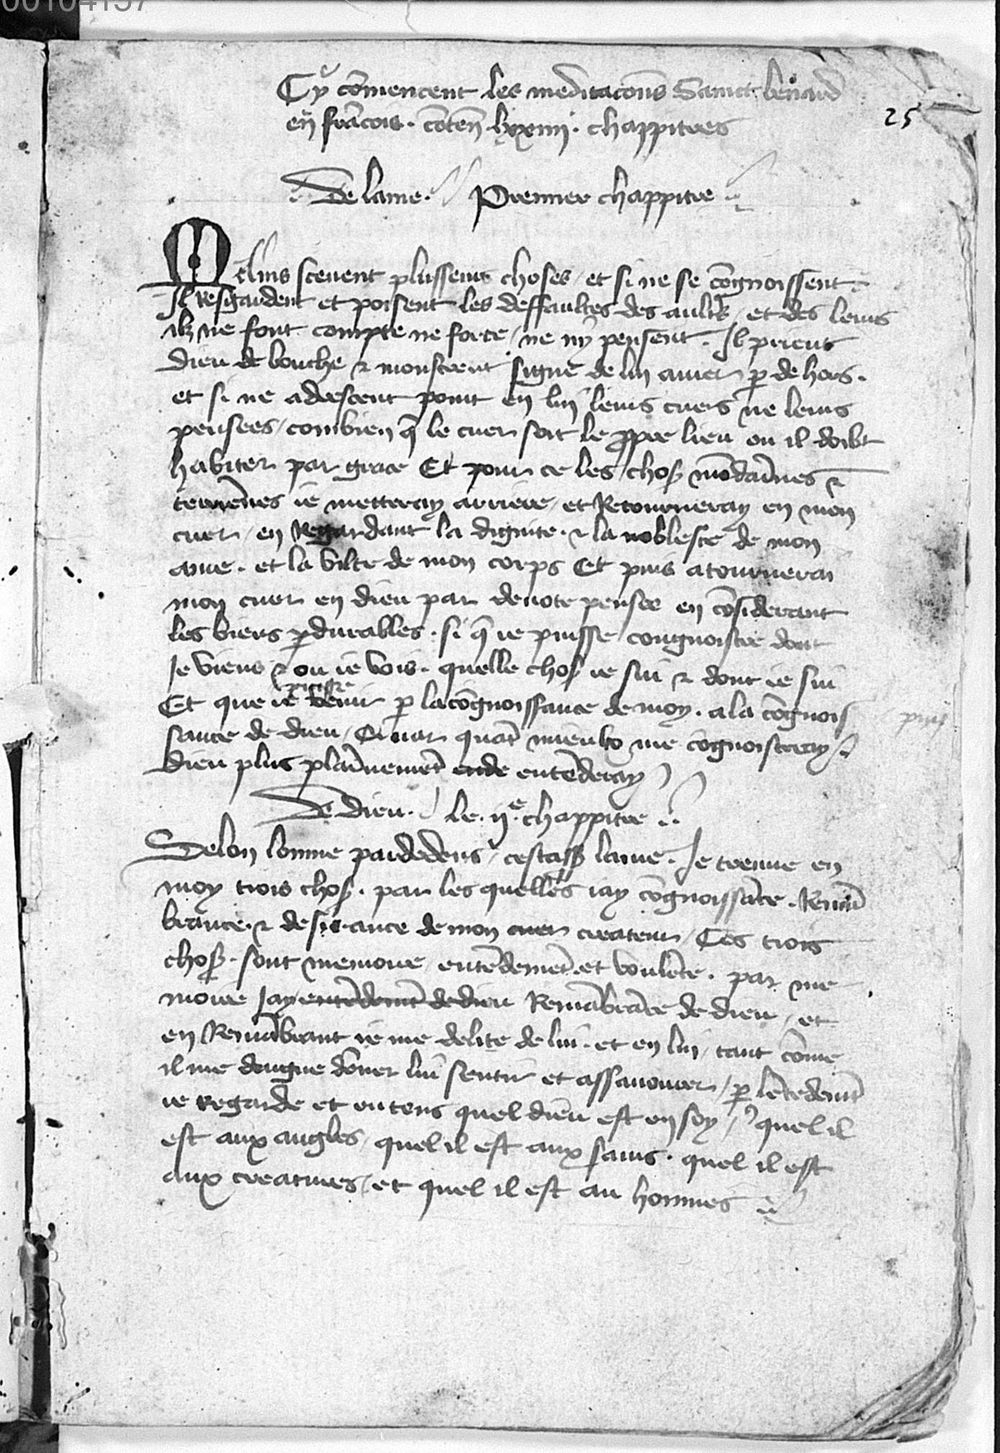 00104157
Cy cōmencent les meditacōns Sainct bernard
en frācois . cōten̄ lxxiiii . chappitres
25
De lame . Premier chappitre
Mlins scevent plusseurs choses et si ne se cōgnoissent .
Il resgardent et poisent les deffaultes des aultrs , et des leurs
ilz ne font compte ne force , ne ny pensent . Il prient
dieu de bouche & monstrent signe de lui amer p̄ de hors .
et si ne adrescent point en lui leurs cuers ne leurs
pensees , combien q̄ le cuer soit le ppre lieu ou il doibt
habiter par grace Et pour ce les chos mōdainnes &
terriēnes ie metteray arriere , et Retourneray en mon
cuer , en Regardant la dignite . & la noblesce de mon
ame . et la vilte de mon corps Et puis atournerai
mon cuer en dieu par devote pensee en cōsiderant
les biens p̄durables . si q̄ ie puisse congnoistre dont
Je viens & ou ie vois . quelle chos ie sui & dont ie sui
puisse
Et que ie venir p̄ la cōgnoissance de moy . a la cōgnois
sance de dieu , Car quāt mieulx me cognoisteray
dieu plus plainnemēt entēderay
De dieu . le . ii.e chappitre
Selon lomme pardedens , cestass lame . Je treuve en
moy trois chos . par les quelles iay cōgnoissāce . Remē
brance . & desirance de mon createur , Ces trois
chos . sont memoire , entēdemēt et voulēte . par me
moire Jay entēdemēt de dieu Remēbrāce de dieu , et
en Remēbrant ie me delite de lui . et en lui , tant cōme
il me daigne dōner lui sentir et assavourer , p̄ lētēdemēt
ie regarde et entens quel dieu est en soy , quel il
est aux angles , quel il est aux sains . quel il est
aux creatures , et quel il est au hommes